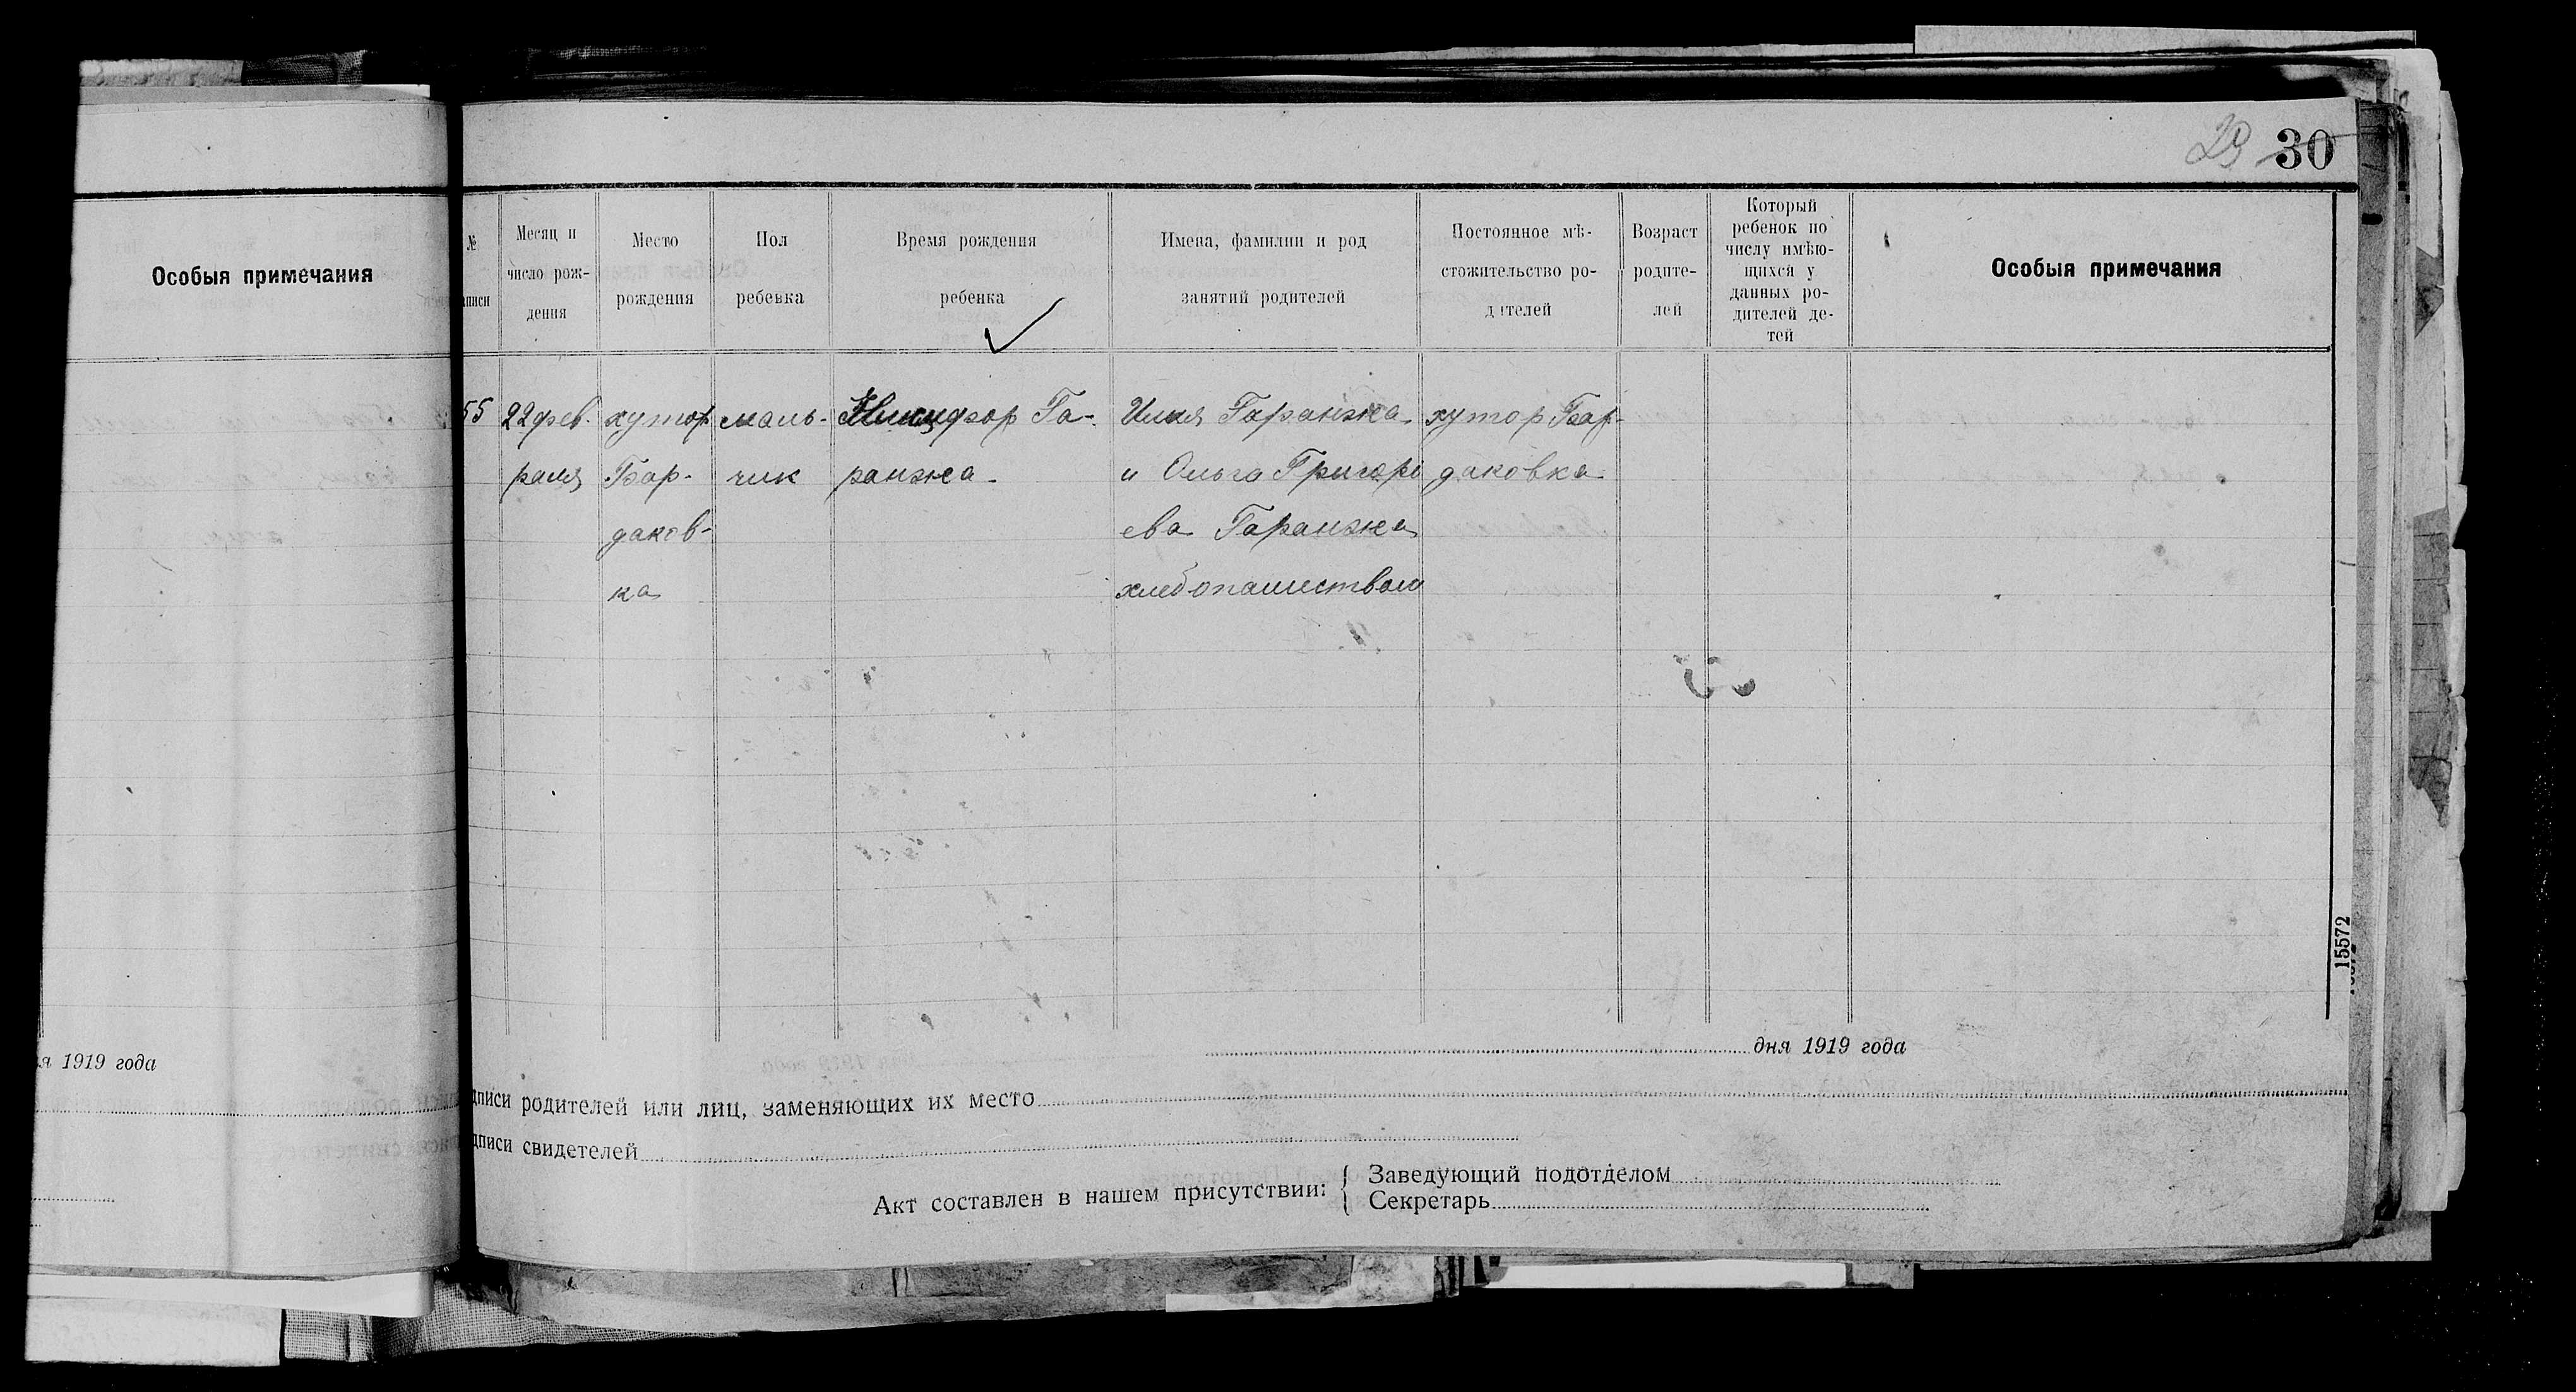 29 30
Особыя примечания
№
аписи
Месяц и
число рож-
дения
Место
рождения
Пол
ребенка
Время рождения
ребенка
Имена, фамилии и род
занятий родителей
Постоянное мѣ-
стожительство ро-
дителей
Возраст
родите-
лей
Который
ребенок по
числу имѣю-
щихся у
данных ро-
дителей де-
тей
Особыя примечания
55 22 фев- хутор маль- Никифор Га- Илья Гаранжа хутор Бар-
раля Бар- чик ранжа и Ольга Григорь даковка
даков- ева Гаранжа
ка хлебопашеством
15572
я 1919 года
дня 1919 года
дписи родителей или лиц, заменяющих их место
дписи свидетелей
Акт составлен в нашем присутствии: { Заведующий подотделом
Секретарь